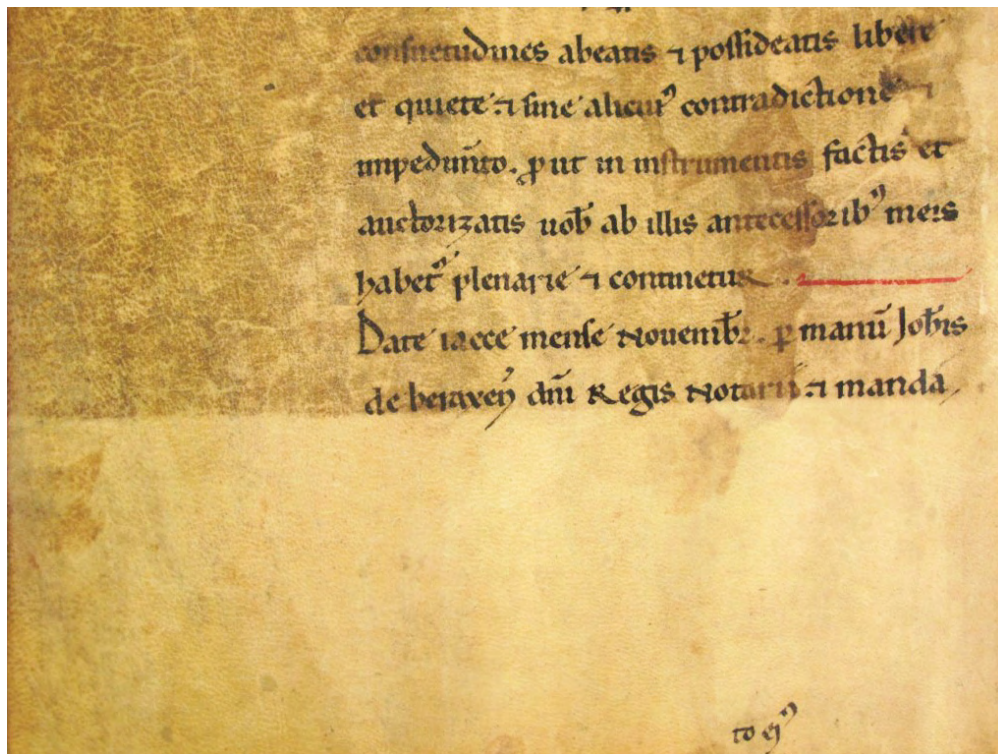 consuetudines abeatis ⁊ possideatis libere
et quiete ⁊ sine alicuiꝰ contradictione ⁊
impedim̄to. ꝓ ut in instrumentis factis et
auctorizatis uob̄ ab illis antecessoribꝰ meis
habetᷣ plenarie ⁊ continetur.
Date iacce mense Nouemb̄r. ꝑ manū Joh̄is
de beraxen̄ dn̄i Regis Notarii ⁊ manda
to eiꝰ